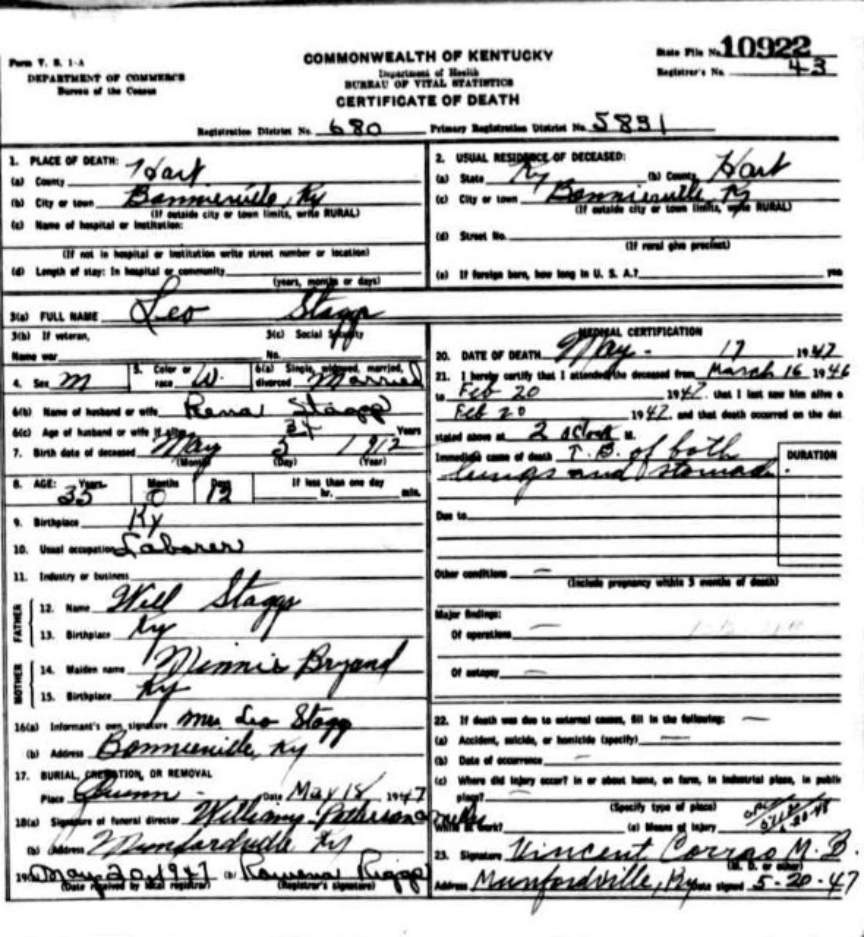 Form V. S. 1-A
DEPARTMENT OF COMMERCE
Bureau of the Census
COMMONWEALTH OF KENTUCKY
Department of Health
BUREAU OF VITAL STATISTICS
CERTIFICATE OF DEATH
State File No. 10922
Registrar's No. 43
Registration District No. 680 Primary Registration District No. 5831
1. PLACE OF DEATH:
(a) County Hart
(b) City or town Bonnieville, Ky
(If outside city or town limits, write RURAL)
(c) Name of hospital or institution:
(If not in hospital or institution write street number or location)
(d) Length of stay: In hospital or community
(years, months or days)
2. USUAL RESIDENCE OF DECEASED:
(a) State Ky (b) County Hart
(c) City or town Bonnieville, Ky
(If outside city or town limits, write RURAL)
(d) Street No.
(If rural give precinct)
(e) If foreign born, how long in U. S. A.? yes
3(a) FULL NAME Leo Stagg
3(b) If veteran,
Name war
3(c) Social Security
No.
4. Sex M
5. Color or race W.
6(a) Single, widowed, married, divorced Married
6(b) Name of husband or wife Rena Stagg
6(c) Age of husband or wife if alive 34 Years
7. Birth date of deceased May 5 1912
(Month) (Day) (Year)
8. AGE: Years Months Days If less than one day
35 0 12 hr. min.
9. Birthplace Ky
10. Usual occupation Laborer
11. Industry or business
FATHER
12. Name Will Staggs
13. Birthplace Ky
MOTHER
14. Maiden name Minnie Bryand
15. Birthplace Ky
16(a) Informant's own signature Mrs Leo Stagg
(b) Address Bonnieville, Ky
17. BURIAL, CREMATION, OR REMOVAL
Place Gunn - Date May 18 1947
18(a) Signature of funeral director Williams Patterson
(b) Address Munfordville Ky
19(a) May 20, 1947 (b) Rowena Riggs
(Date received by local registrar) (Registrar's signature)
MEDICAL CERTIFICATION
20. DATE OF DEATH May - 17 1947
21. I hereby certify that I attended the deceased from March 16 1946
to Feb 20 1947, that I last saw him alive o
Feb 20 1947 and that death occurred on the dat
stated above at 2 oClock M.
Immediate cause of death T.B. of both
lungs and stomach.
DURATION
Due to
Other conditions —
(Include pregnancy within 3 months of death)
Major findings:
Of operations —
Of autopsy —
22. If death was due to external causes, fill in the following: —
(a) Accident, suicide, or homicide (specify) —
(b) Date of occurrence —
(c) Where did injury occur? In or about home, on farm, in industrial place, in public
place?
(Specify type of place)
While at work? (e) Means of injury
23. Signature Vincent Corrao M.D.
(M. D. or other)
Address Munfordville, Ky Date signed 5-20-47